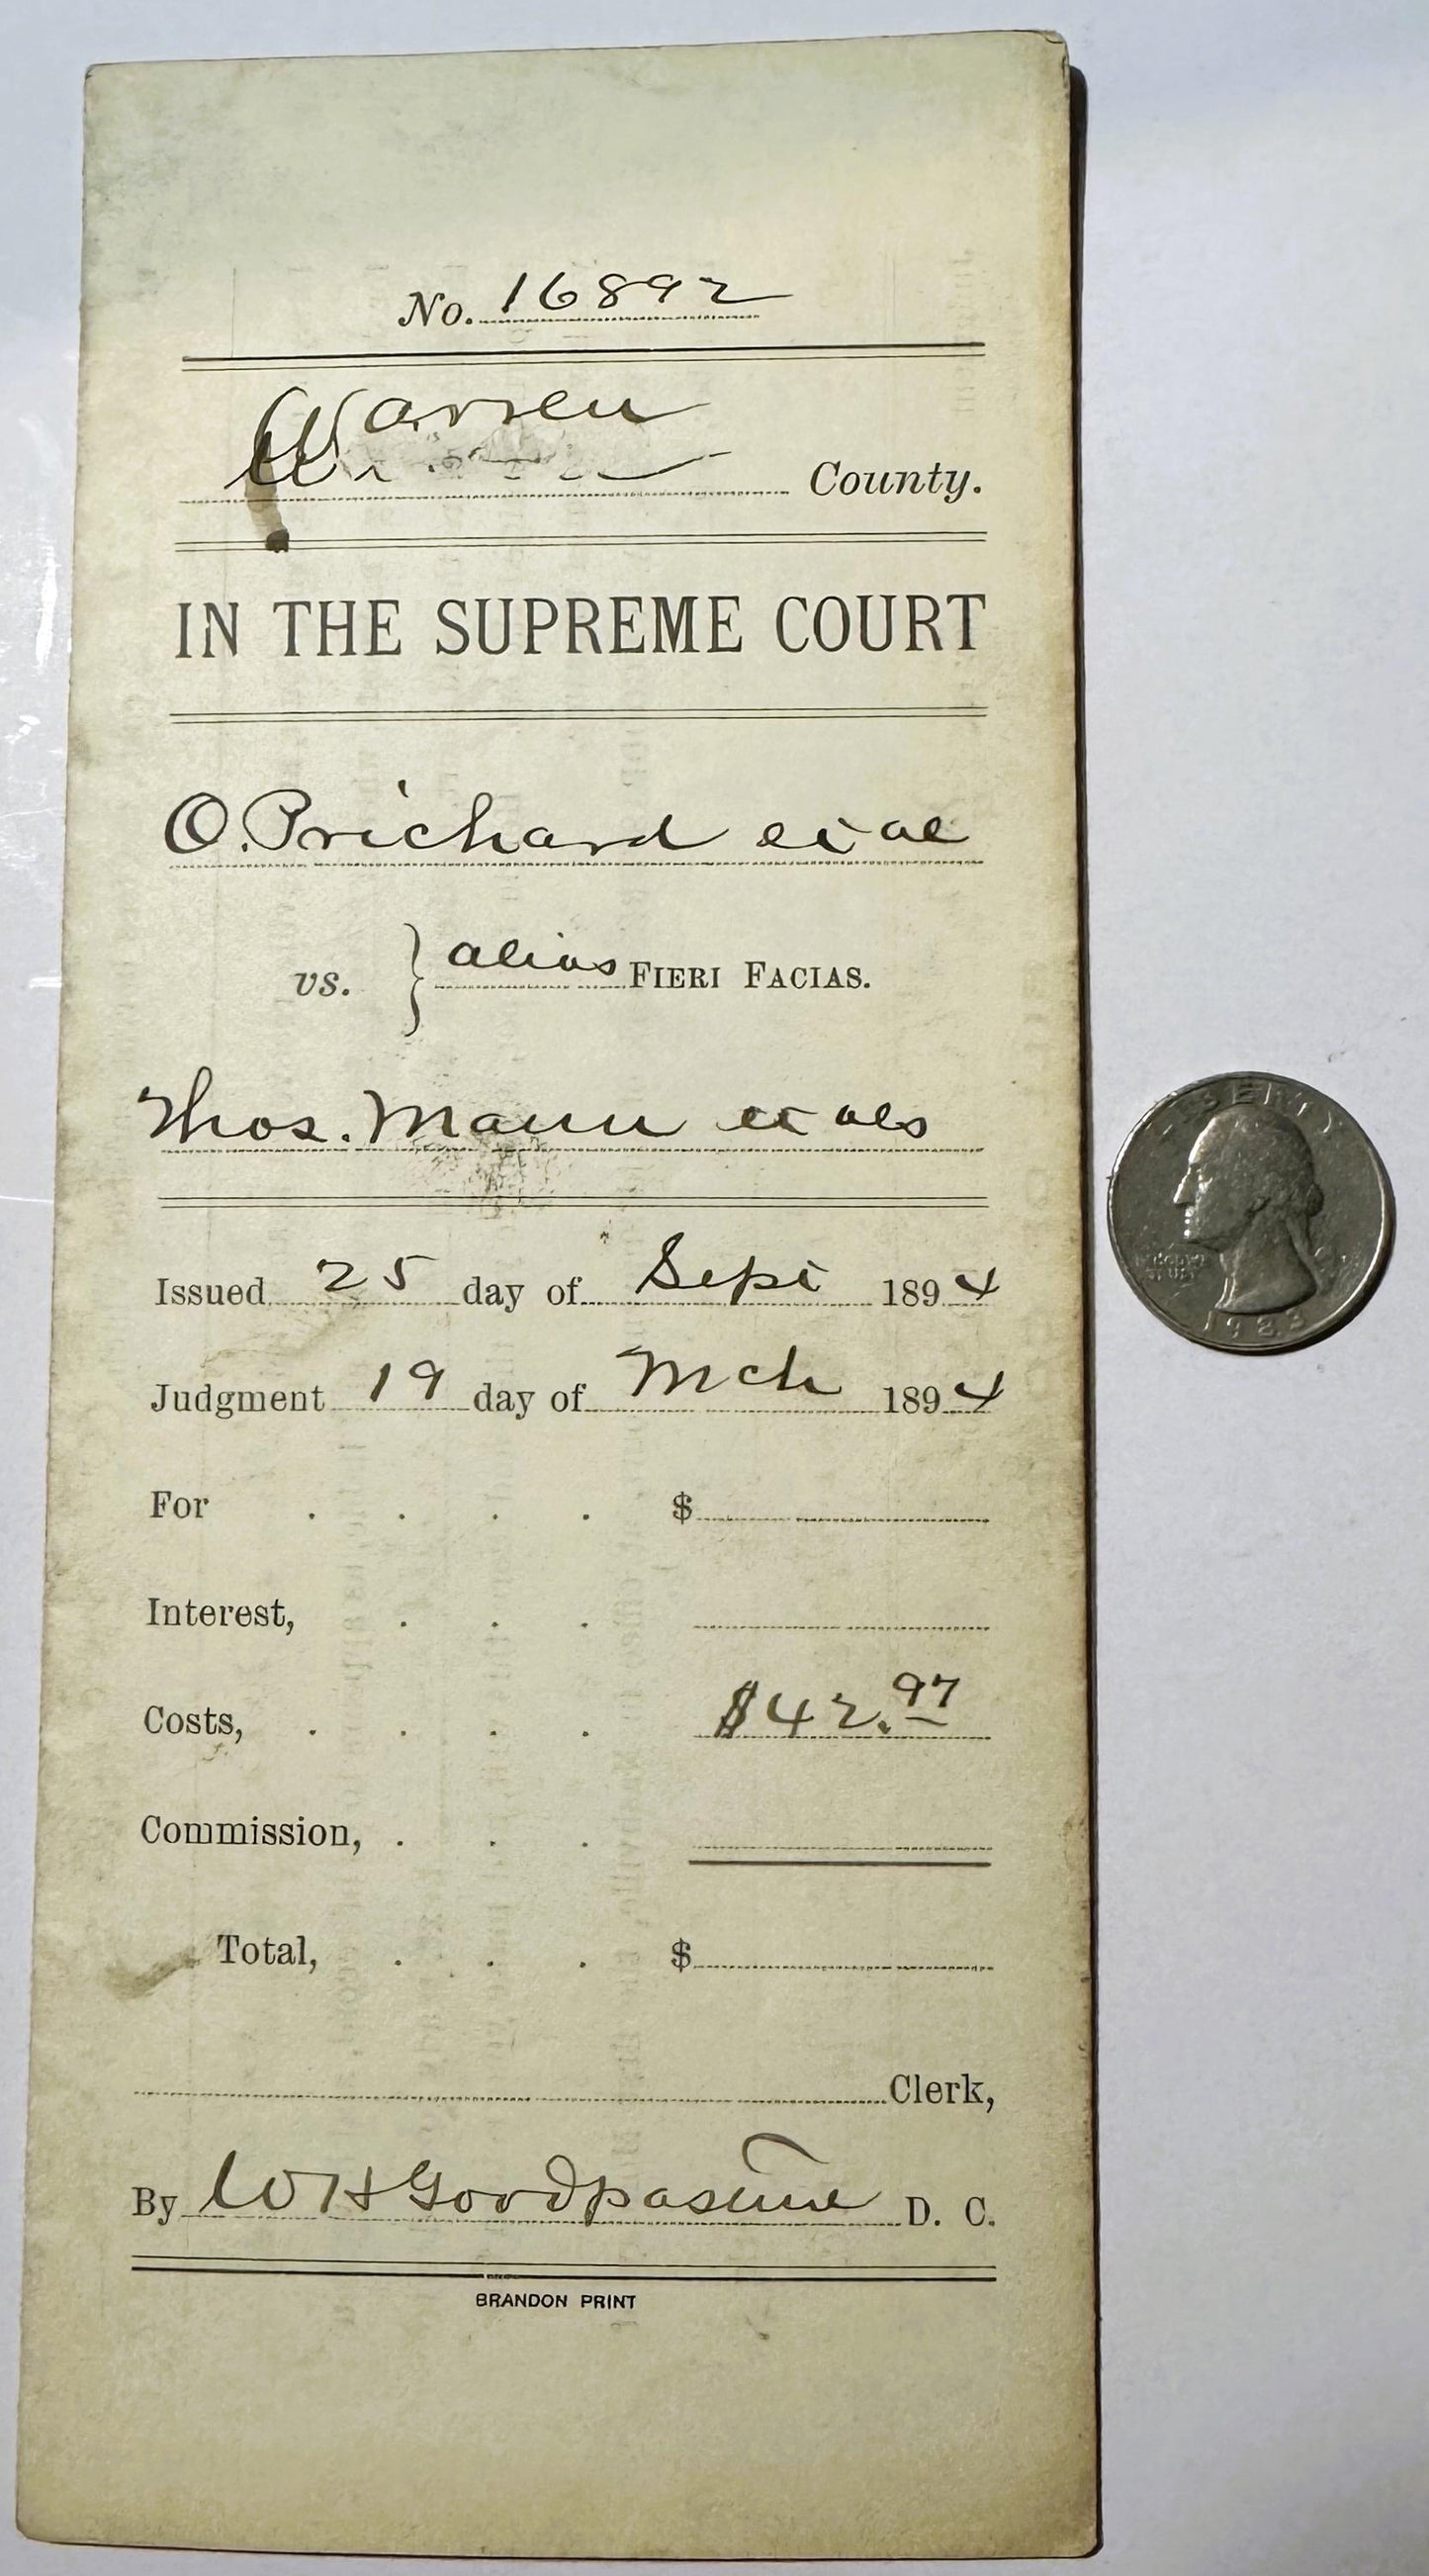 No. 16892
Warren
County.
IN THE SUPREME COURT
O. Prichard et al
vs. } alias FIERI FACIAS.
Thos. Mann et als
Issued 25 day of Sept 1894
Judgment 19 day of Mch 1894
For . . . . $
Interest, . . .
Costs, . . . . $42.97
Commission, . . .
Total, . . . $
Clerk,
By W H Goodpasture D. C.
BRANDON PRINT
LIBERTY
1983